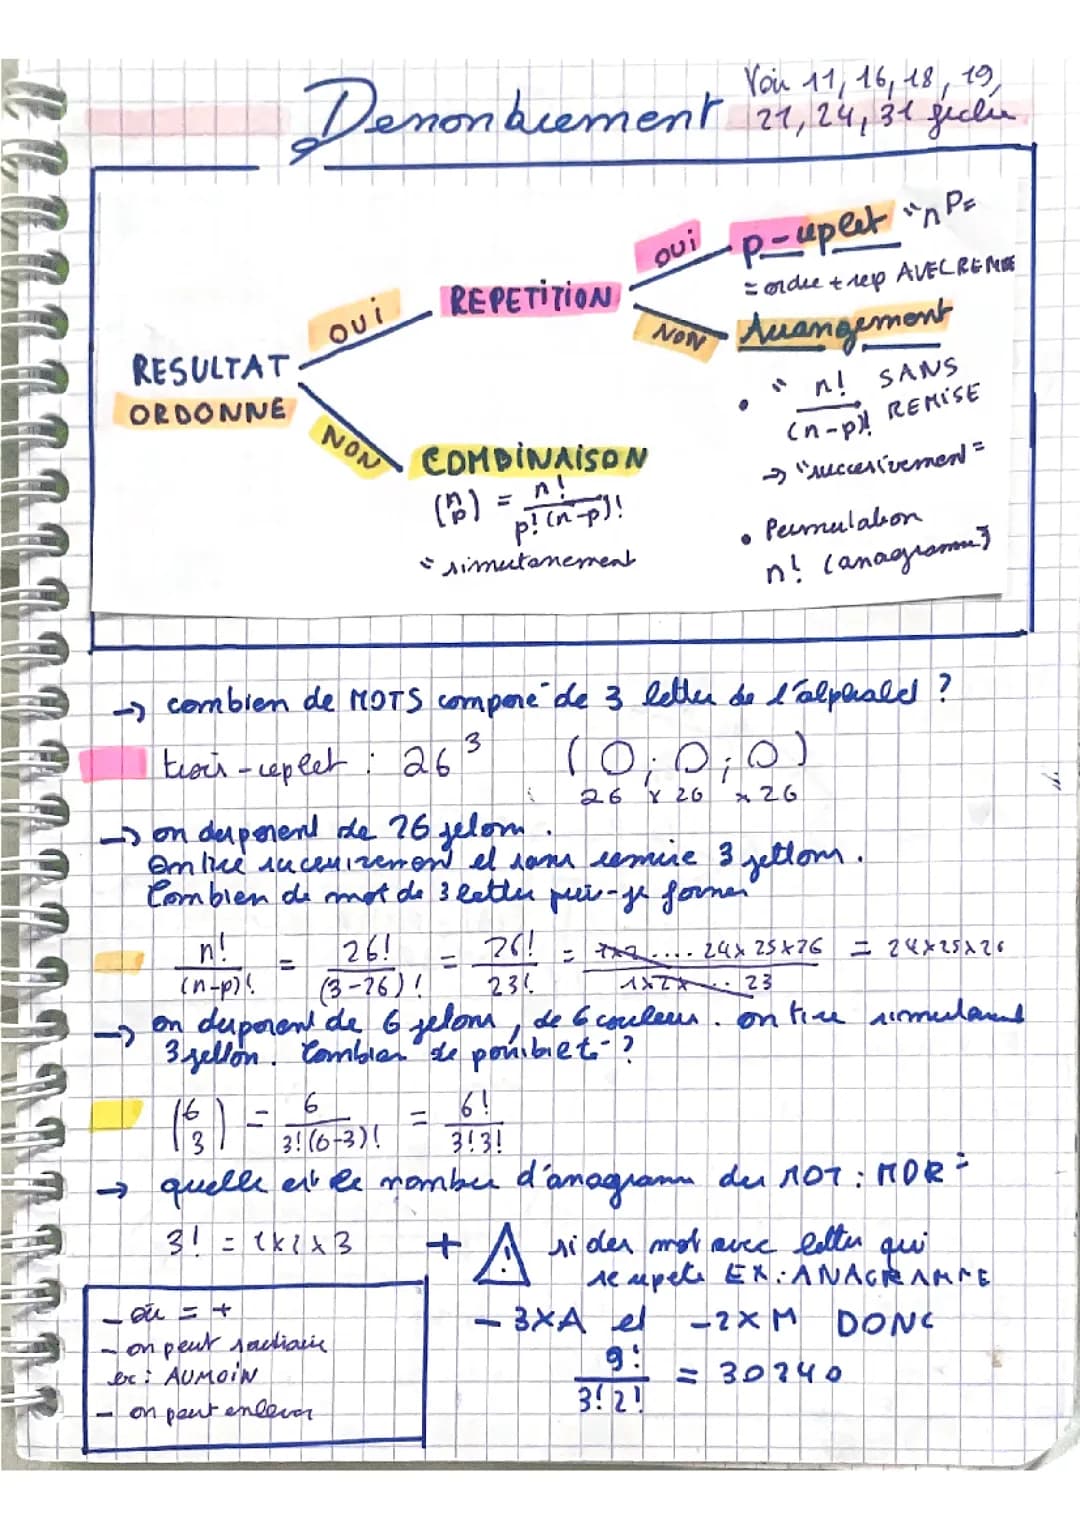 Denombrement
Voir 11, 16, 18, 19,
21, 24, 31 fiche
RESULTAT
ORDONNE
OUI
NON
REPETITION
OUI
NON
p-uplet "n P=
= ordre + rep AVEC REMISE
Arrangement
• " n! SANS
(n-p)! REMISE
→ "successivement"
• Permutation
n! (anagramme)
COMBINAISON
(n p) = n! / p!(n-p)!
= simutanement
→ combien de MOTS composé de 3 letter de l'alphabet ?
trois-uplet : 26³ (O ; O ; O)
26 x 26 x 26
→ on disposent de 26 jetons.
on tire sucessivement et sans remise 3 jettons.
Combien de mot de 3 letter puis-je former
n! / (n-p)! = 26! / (3-26)! = 26! / 23! = 1x2 .... 24x25x26 / 1x2x .. 23 = 24x25x26
→ on disposent de 6 jetons, de 6 couleurs. on tire simulant
3 jetton. Combien de possibiet ?
(6 3) = 6 / 3!(6-3)! = 6! / 3!3!
→ quelle est le nombre d'anagramme du MOT : MDR =
3! = 1x2x3
+ ⚠ si des mot avec letter qui
se repete EX : ANAGRAMME
- 3xA et -2xM DONC
9! / 3!2! = 30240
- ou = +
- on peut
ex : AUMOIN
- on peut enlever